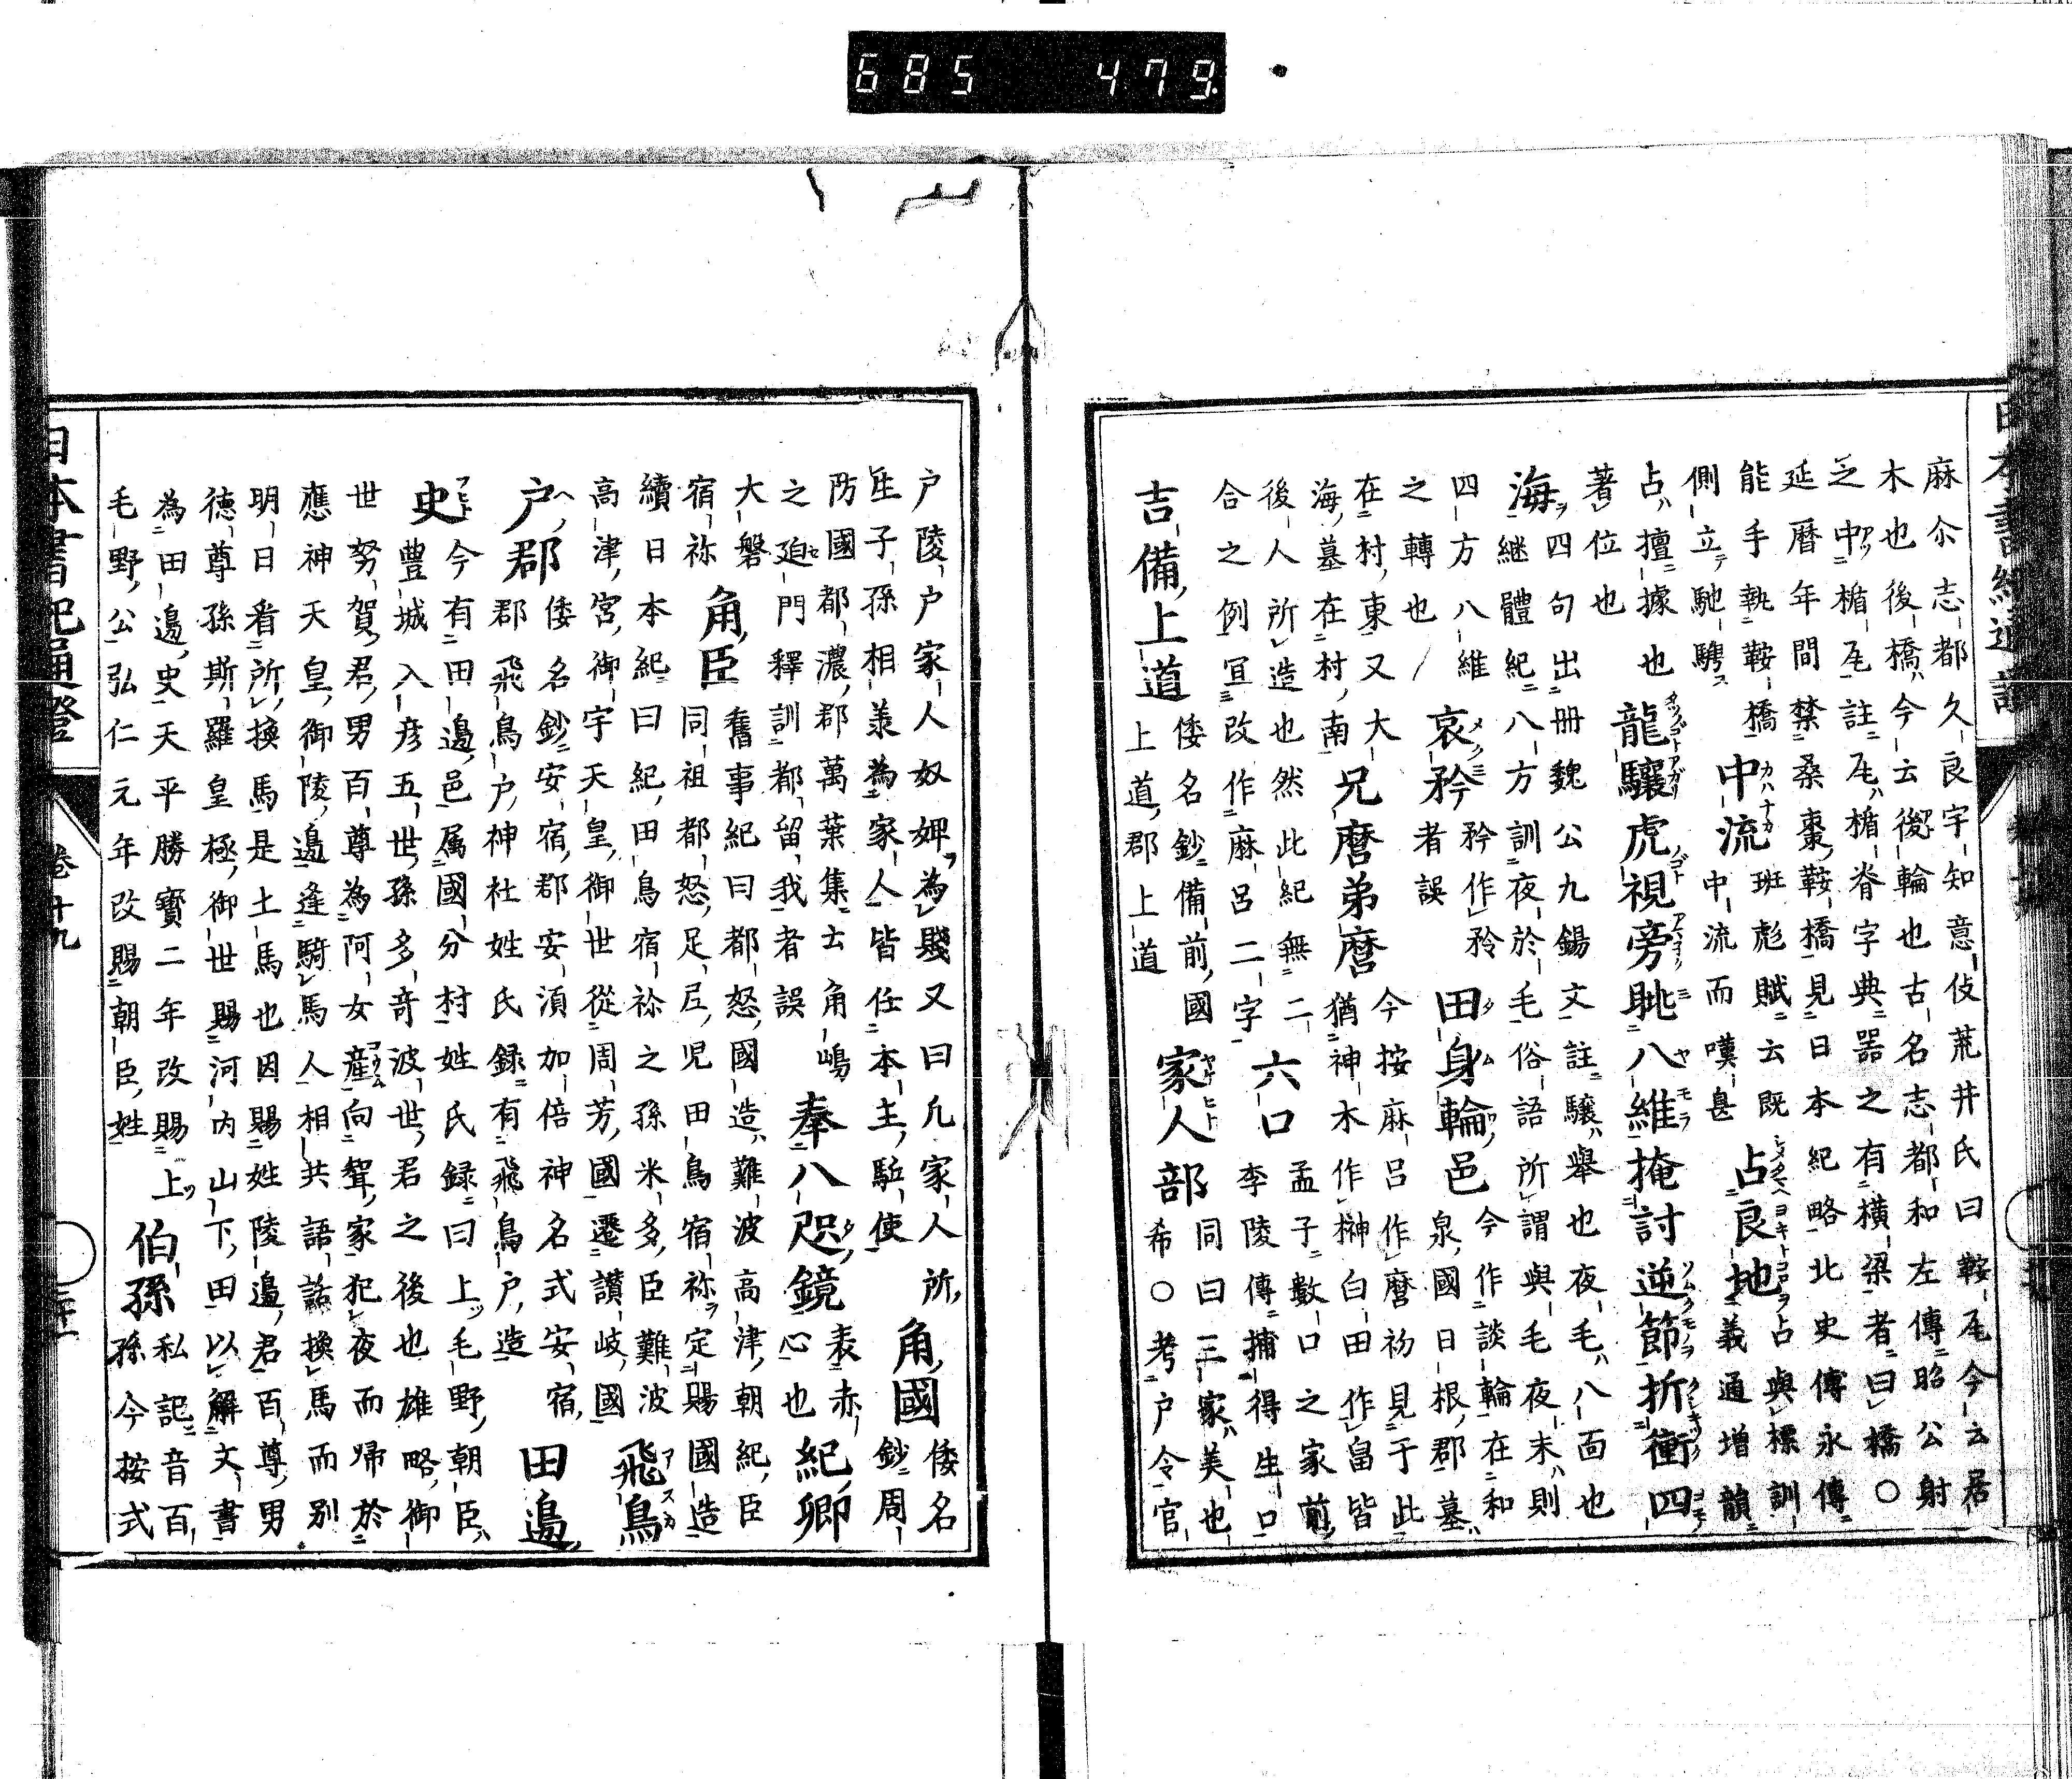 685 479
麻尒志都久良宇知意伎荒井氏曰鞍𡱈今云居
木也後橋今云後輪也古名志都和左傳昭公射
之中楯𡱈註𡱈楯脊字典器之有横梁者曰橋○
延暦年間禁桑棗鞍橋見日本紀略北史傳永傳
能手執鞍橋
側立馳騁
中流
班彪賦云既
中流而嘆息
占良地
占與標訓
義通増韻
占擅據也
著位也
龍驤虎視旁眺八維掩討逆節折衝四
海
四句出册魏公九錫文註驤舉也夜毛八面也
継體紀八方訓夜於毛俗語所謂與毛夜末則
四方八維
之轉也
哀矜
矜作矝
者誤
田身輪邑
今作談輪在和
泉國日根郡墓
在村東又大
海墓在村南
兄麿弟麿
今按麻呂作麿礽見于此
猶神木作榊白田作畠皆
後人所造也然此紀無二
合之例冝改作麻呂二字
六口
孟子數口之家前
李陵傳捕得生口
吉備上道
倭名鈔備前國
上道郡上道
家人部
同曰三家美也
希○考戸令官
日本書紀通證
卷十九
戸陵戸家人奴婢為賤又曰凡家人所
生子孫相羕為家人皆任本主駈使
角國
倭名
鈔周
防國都濃郡萬葉集云角嶋
之廹門釋訓都留我者誤
奉八咫鏡
表赤
心也
紀卿
大磐
宿祢
角臣
舊事紀曰都怒國造難波高津朝紀臣
同祖都怒足尼児田鳥宿祢定賜國造
續日本紀曰紀田鳥宿祢之孫米多臣難波
高津宮御宇天皇御世從周芳國遷讃岐國
飛鳥
戸郡
倭名鈔安宿郡安湏加倍神名式安宿
郡飛鳥戸神社姓氏録有飛鳥戸造
田邉
史
今有田邉邑属國分村姓氏録曰上毛野朝臣
豊城入彦五世孫多竒波世君之後也雄略御
世努賀君男百尊為阿女産向聟家犯夜而帰於
應神天皇御陵邉逢騎馬人相共語話換馬而别
明日看所換馬是土馬也因賜姓陵邉君百尊男
德尊孫斯羅皇極御世賜河内山下田以解文書
為田邉史天平勝寳二年改賜上
毛野公弘仁元年改賜朝臣姓
伯孫
私記音百
孫今按式
日本書紀通證
卷十九